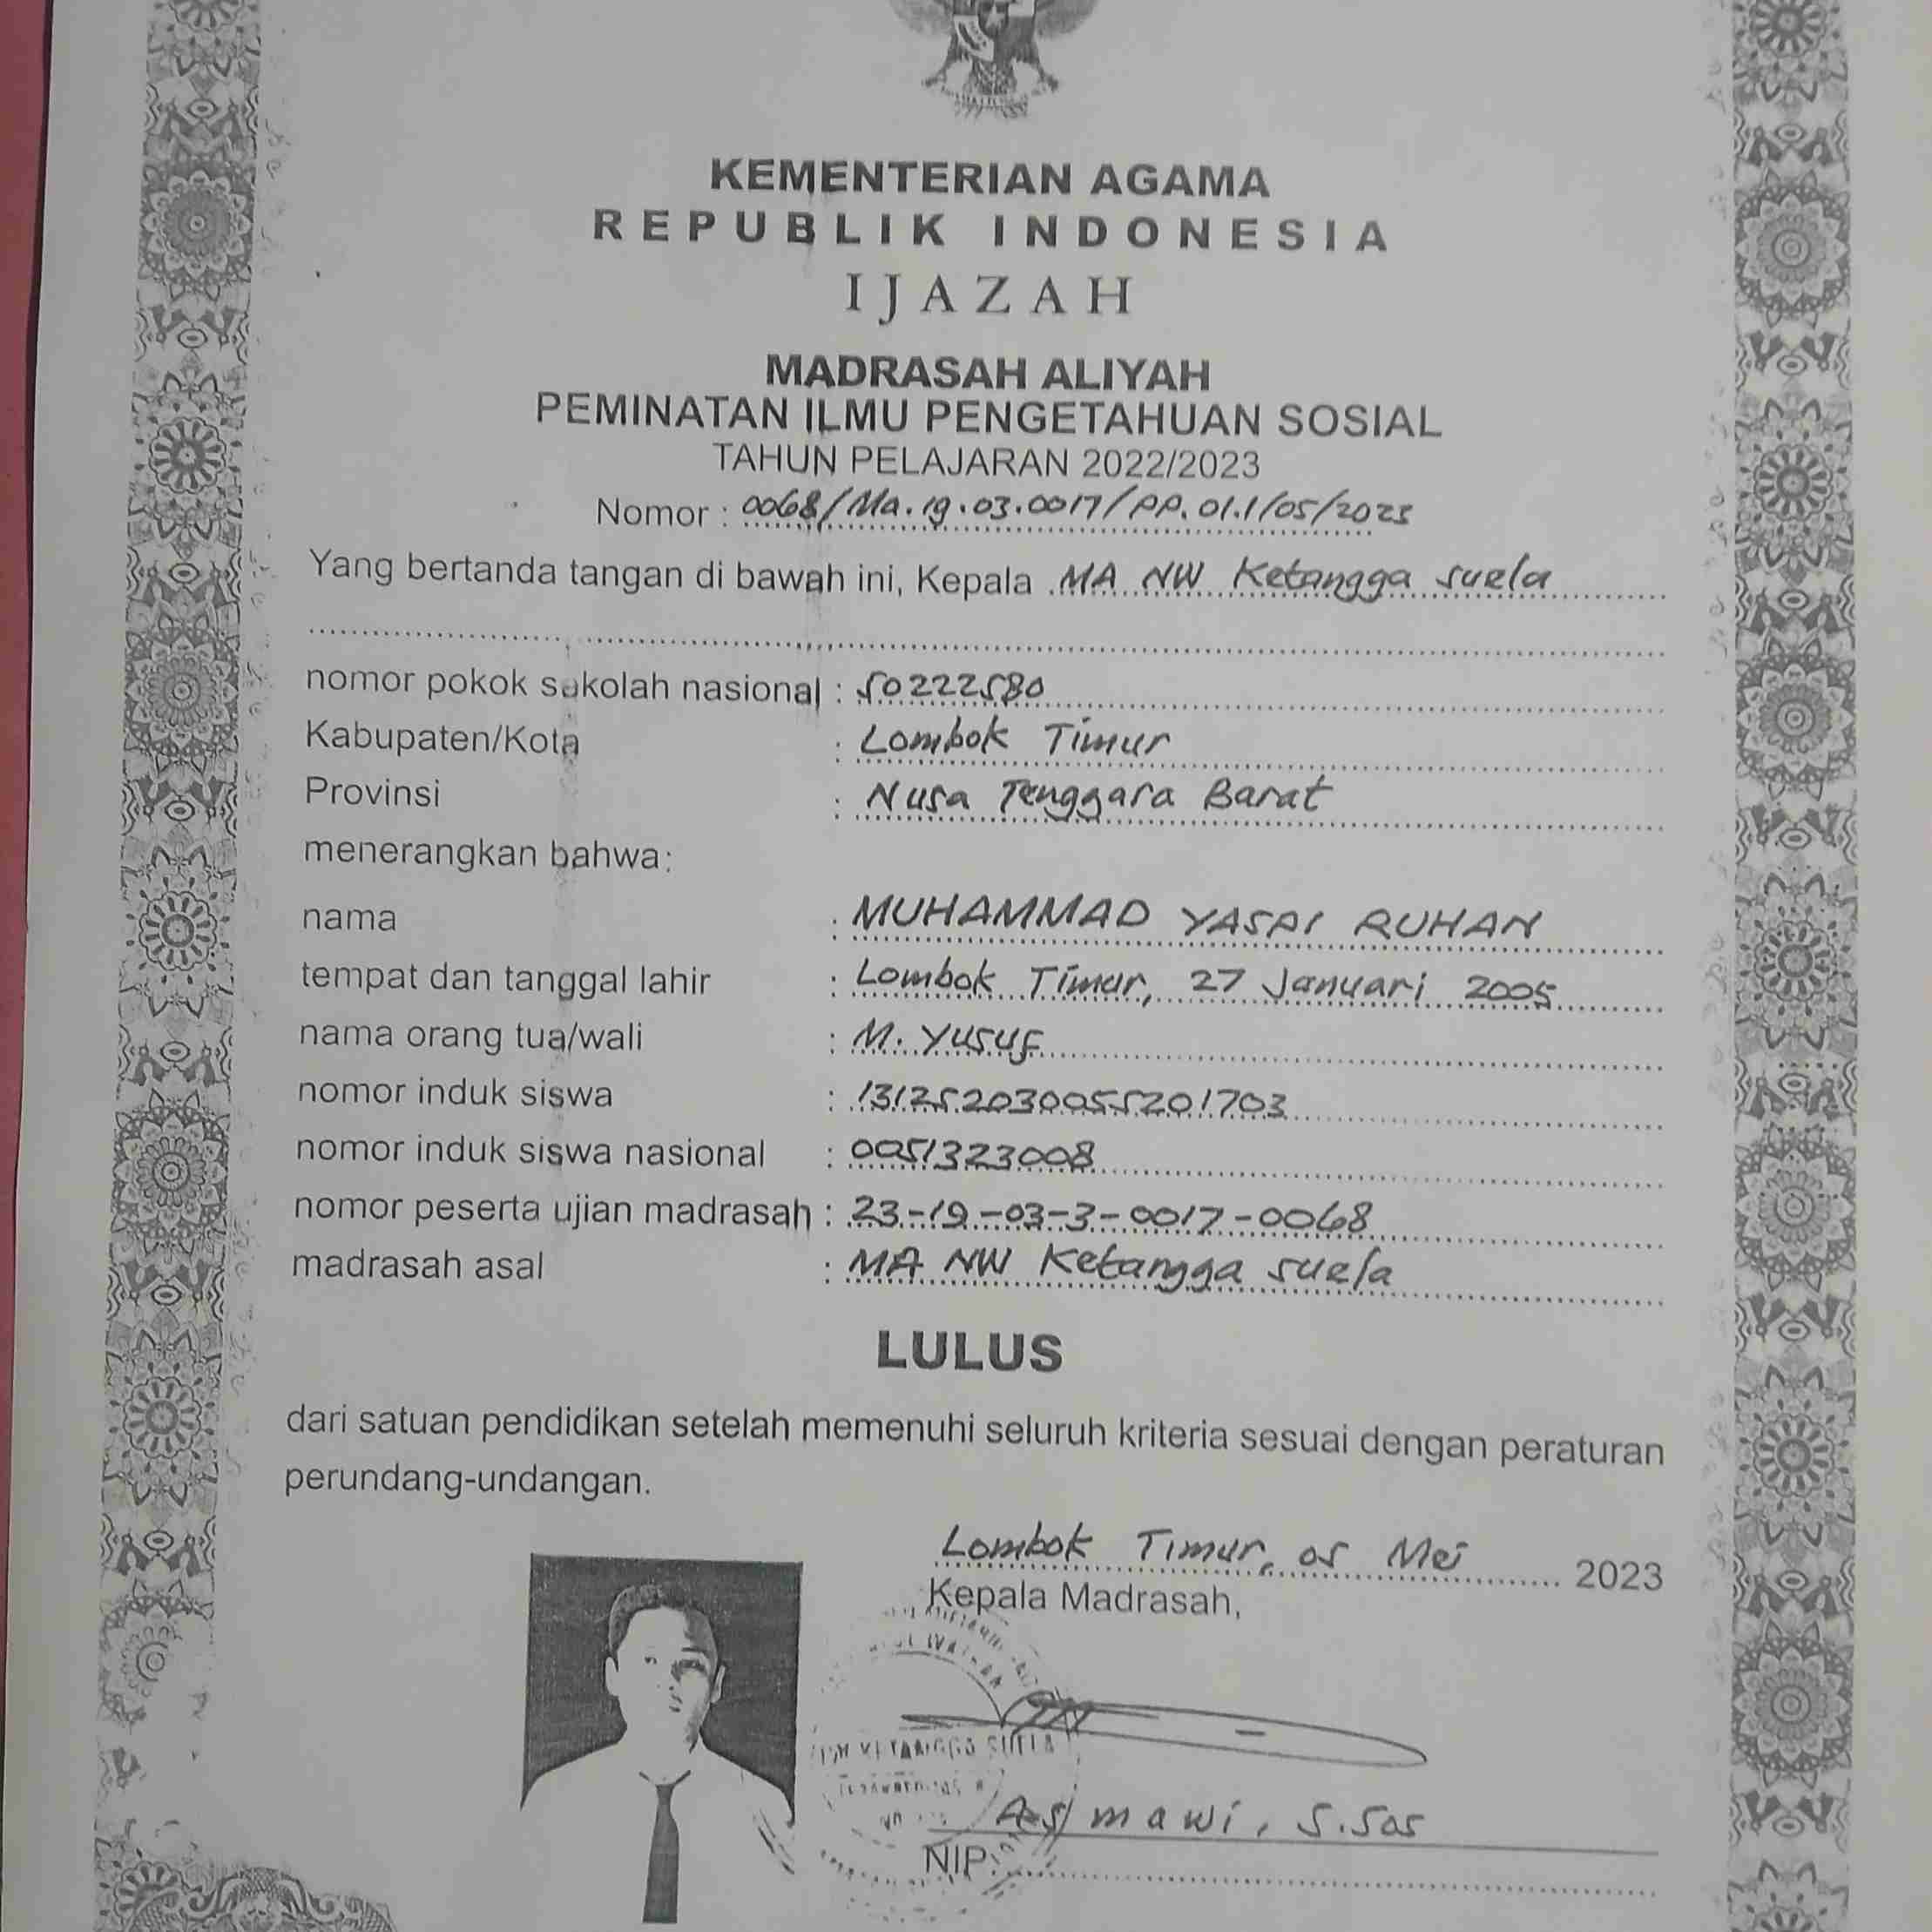 KEMENTERIAN AGAMA
REPUBLIK INDONESIA
IJAZAH
MADRASAH ALIYAH
PEMINATAN ILMU PENGETAHUAN SOSIAL
TAHUN PELAJARAN 2022/2023
Nomor : 0068/Ma.19.03.0017/PP.01.1/05/2023
Yang bertanda tangan di bawah ini, Kepala MA NW Ketangga Suela
nomor pokok sekolah nasional : 50222580
Kabupaten/Kota : Lombok Timur
Provinsi : Nusa Tenggara Barat
menerangkan bahwa:
nama : MUHAMMAD YASPI RUHAN
tempat dan tanggal lahir : Lombok Timur, 27 Januari 2005
nama orang tua/wali : M. Yusuf
nomor induk siswa : 131252030055201703
nomor induk siswa nasional : 0051323008
nomor peserta ujian madrasah : 23-19-03-3-0017-0068
madrasah asal : MA NW Ketangga Suela
LULUS
dari satuan pendidikan setelah memenuhi seluruh kriteria sesuai dengan peraturan
perundang-undangan.
Lombok Timur, 05 Mei 2023
Kepala Madrasah,
Asmawi, S.Sos
NIP.